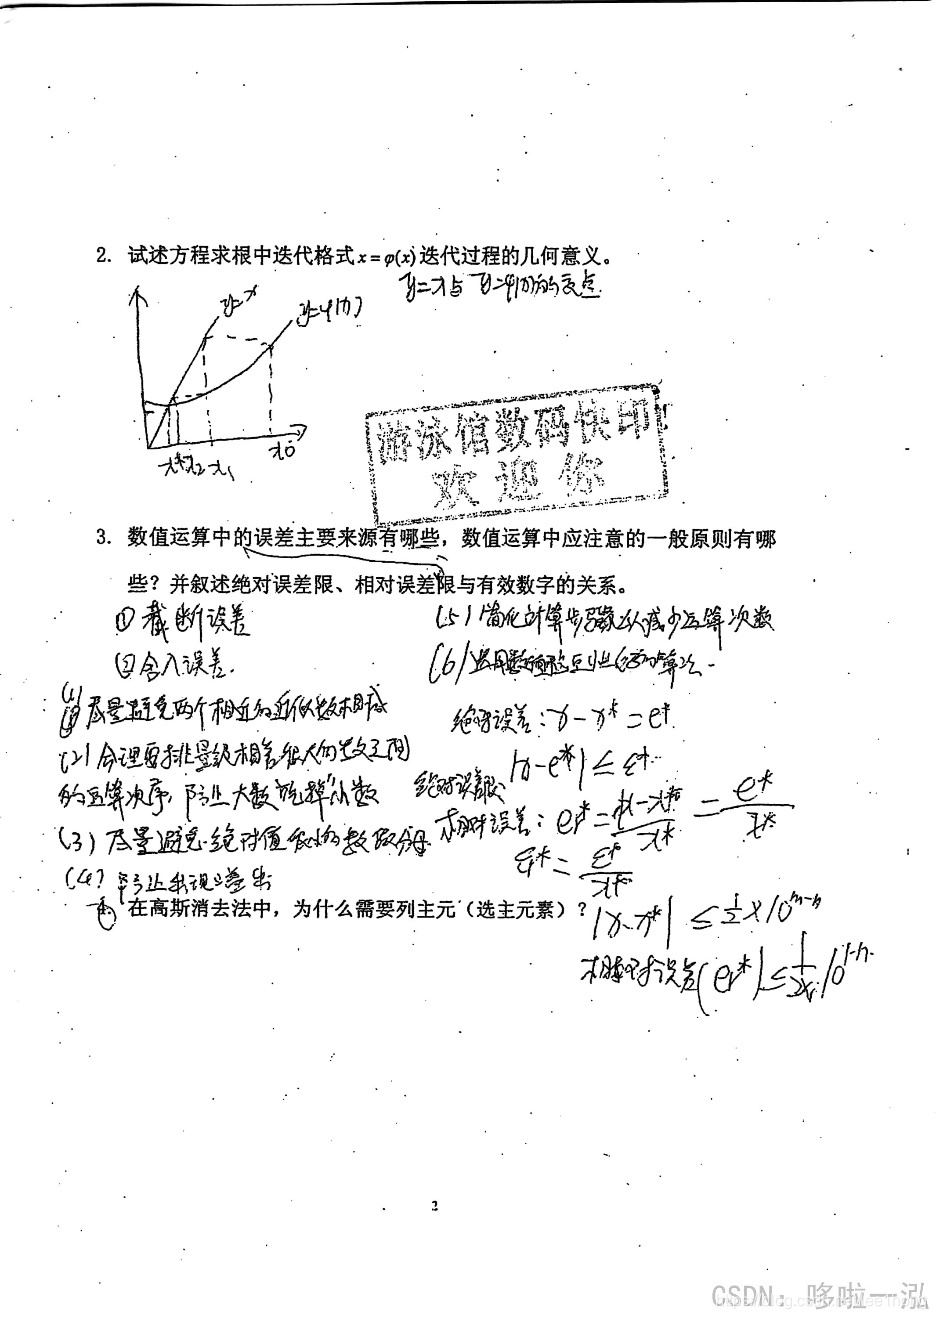 2. 试述方程求根中迭代格式x=φ(x)迭代过程的几何意义。
y=x与y=φ(x)的交点
y=x
y=φ(x)
x* x2 x1 x0
游泳馆数码快印
欢迎你
3. 数值运算中的误差主要来源有哪些，数值运算中应注意的一般原则有哪
些？并叙述绝对误差限、相对误差限与有效数字的关系。
① 截断误差
② 舍入误差.
(1) 尽量避免两个相近的近似数相减
(2) 合理安排量级相差很大的数之间
的运算次序, 防止大数"吃掉"小数
(3) 尽量避免绝对值很小的数做分母
(4) 防止出现
(5) 简化计算步骤以减少运算次数
(6)
绝对误差: x-x*=e*
|x-e*|≤ε*
绝对误差限
相对误差: er*=(x-x*)/x*=e*/x*
εr*=ε*/x*
4. 在高斯消去法中，为什么需要列主元（选主元素）？
|x-x*|≤1/2×10^(m-n)
相对误差|er*|≤
10^(1-n)
2
CSDN：哆啦一泓